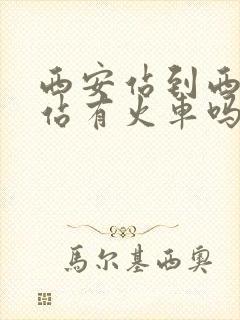 西安佔到西
佔有火車吗
馬尔基西奥